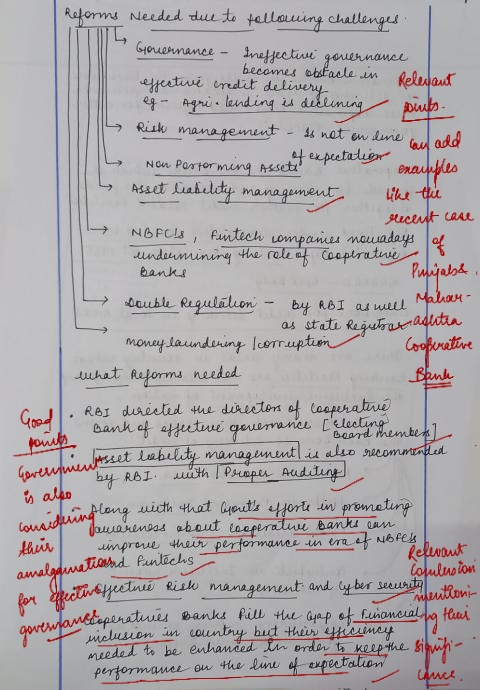 Reforms Needed due to following challenges.
Governance – Ineffective governance
becomes obstacle in
effective credit delivery
eg – Agri. lending is declining
Risk management – Is not on line
of expectation
Non Performing Assets
Asset liability management
NBFC's, Fintech companies nowadays
undermining the role of Cooperative
Banks
Double Regulation – By RBI as well
as state Registrar
money laundering / corruption
Relevant
points.
Can add
examples
like the
recent case
of
Punjab &
Mahar-
ashtra
Cooperative
Bank
What Reforms needed
• RBI directed the directors of Cooperative
Bank of effective governance [electing
board members]
Asset liability management is also recommended
by RBI. with Proper Auditing
Along with that Govt's efforts in promoting
awareness about cooperative banks can
improve their performance in era of NBFCs
and Fintechs
Effective Risk management and Cyber security
Cooperatives Banks fill the Gap of Financial
inclusion in country but their efficiency
needed to be enhanced in order to keep the
performance on the line of expectation
Good
points
Government
is also
considering
their
amalgamation
for effective
governance
Relevant
Conclusion
mentioni-
ng their
signifi-
cance.